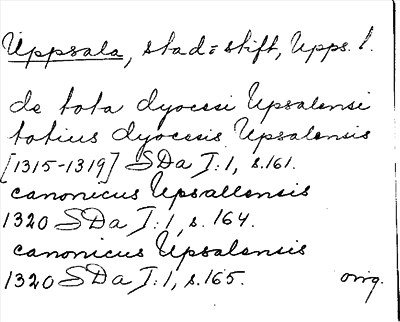 Uppsala, stad = stift, Upps. l.
de tota dyocesi Upsalensi
totius dyocesis Upsalensis
[1315-1319] SDa I:1, s.161.
canonicus Upsallensis
1320 SDa I:1, s.164.
canonicus Upsalensis
1320 SDa I:1, s.165. orig.